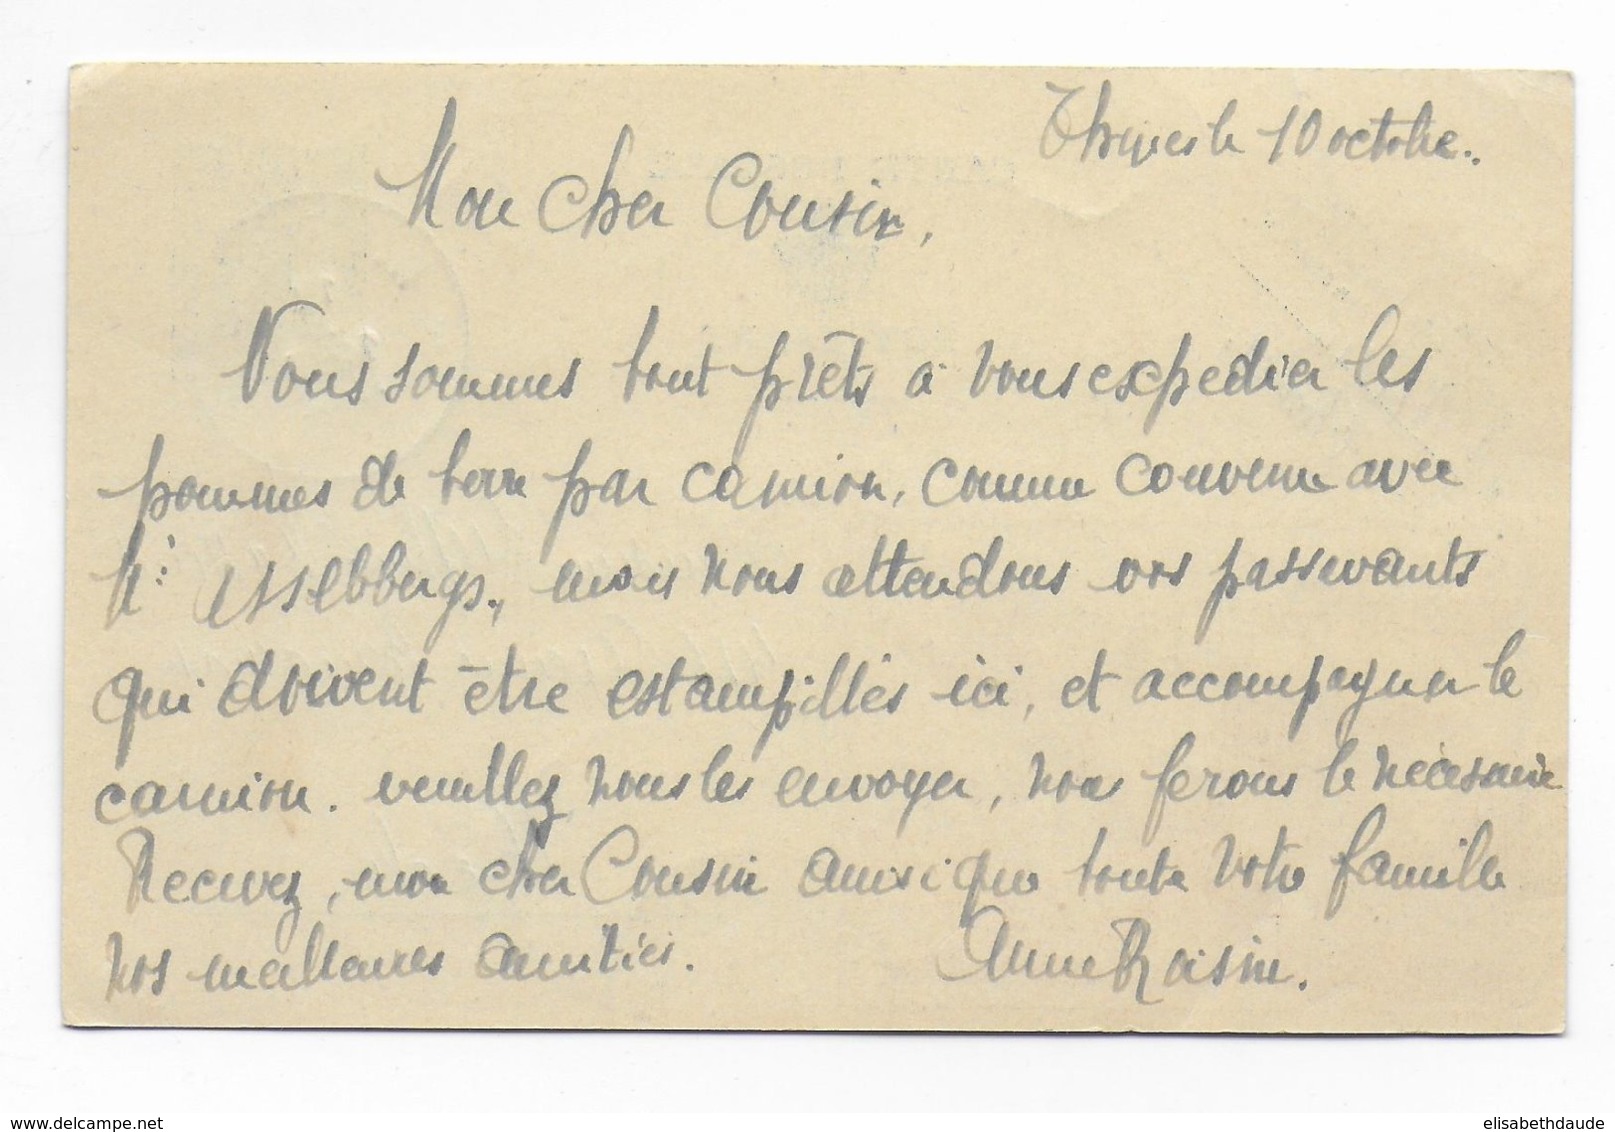 le 10 octobre.
Mon cher Cousin,
Nous sommes tout prêts à vous expedier les
pommes de terre par camion, comme convenu avec
Mr mais nous attendons vos passavants
qui doivent être estampillés ici, et accompagner le
camion. veuillez nous les envoyer, nous ferons le nécessaire
Recevez, mon cher Cousin ainsi que toute votre famille
nos meilleures amitiés. Anne Raisin.
elisabethdaude